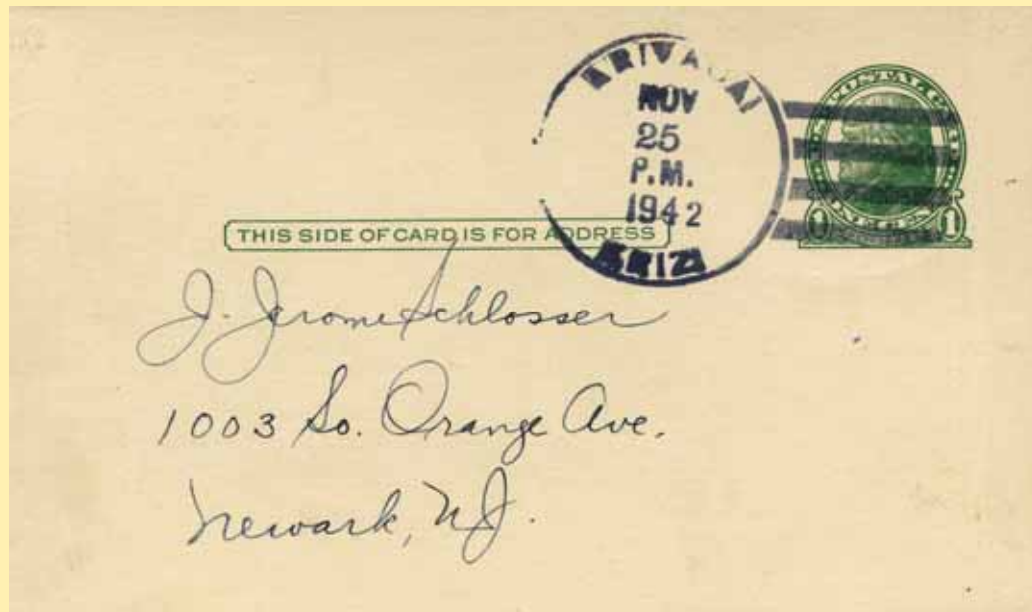 ARIVACA
NOV
25
P.M.
1942
ARIZ
U.S. POSTAL CARD
1 ONE CENT 1
THIS SIDE OF CARD IS FOR ADDRESS
J. Jerome Schlosser
1003 So. Orange Ave.
Newark, NJ.